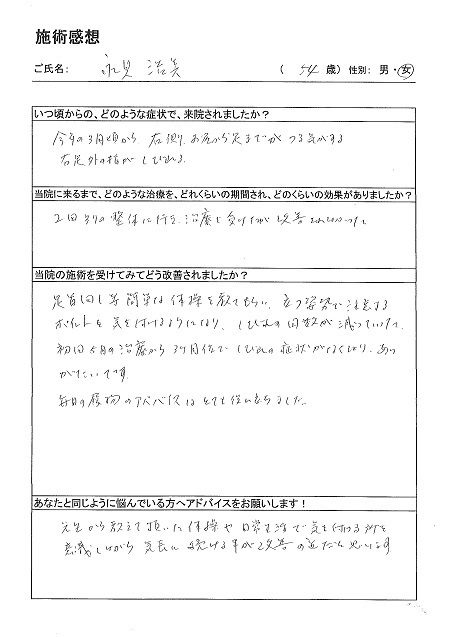 施術感想
ご氏名： 永見 治美 （ 54 歳）性別： 男・女
いつ頃からの、どのような症状で、来院されましたか？
今年の3月頃から 右側り お尻から足までがつる気がする
右足外の指がしびれる。
当院に来るまで、どのような治療を、どれくらいの期間され、どのくらいの効果がありましたか？
2回 別の整体に行き 治療を受けたが 改善されなかった
当院の施術を受けてみてどう改善されましたか？
足首回し等 簡単な体操を教えてもらい、立つ姿勢で注意する
ポイントを気を付けるようになり、しびれの回数が減っていった。
初回 5月の治療から 3ヶ月位で しびれの症状がなくなり、あり
がたいです。
毎日の履物のアドバイスはとても役に立ちました。
あなたと同じように悩んでいる方へアドバイスをお願いします！
先生から教えて頂いた体操や日常生活で気を付ける所を
意識しながら 気長に続ける事が改善の近だと思います